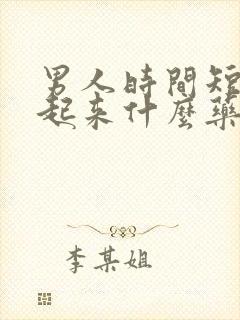 男人時間短
起來什麼藥
李某姐